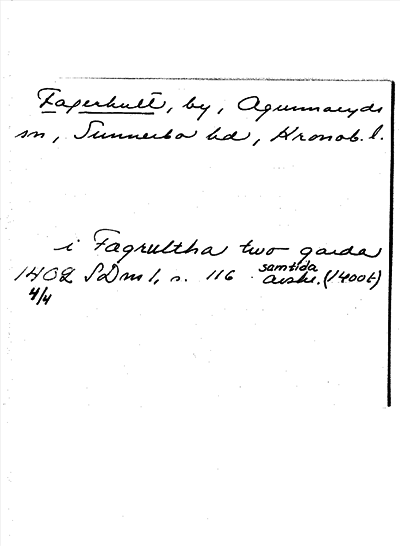 Fagerhult, by, Agunnaryds
sn, Sunnerbo hd, Kronob. l.
i Fagrultha two garda
1402 SDns 1, s. 116 samtida avskr. (1400t)
4/4